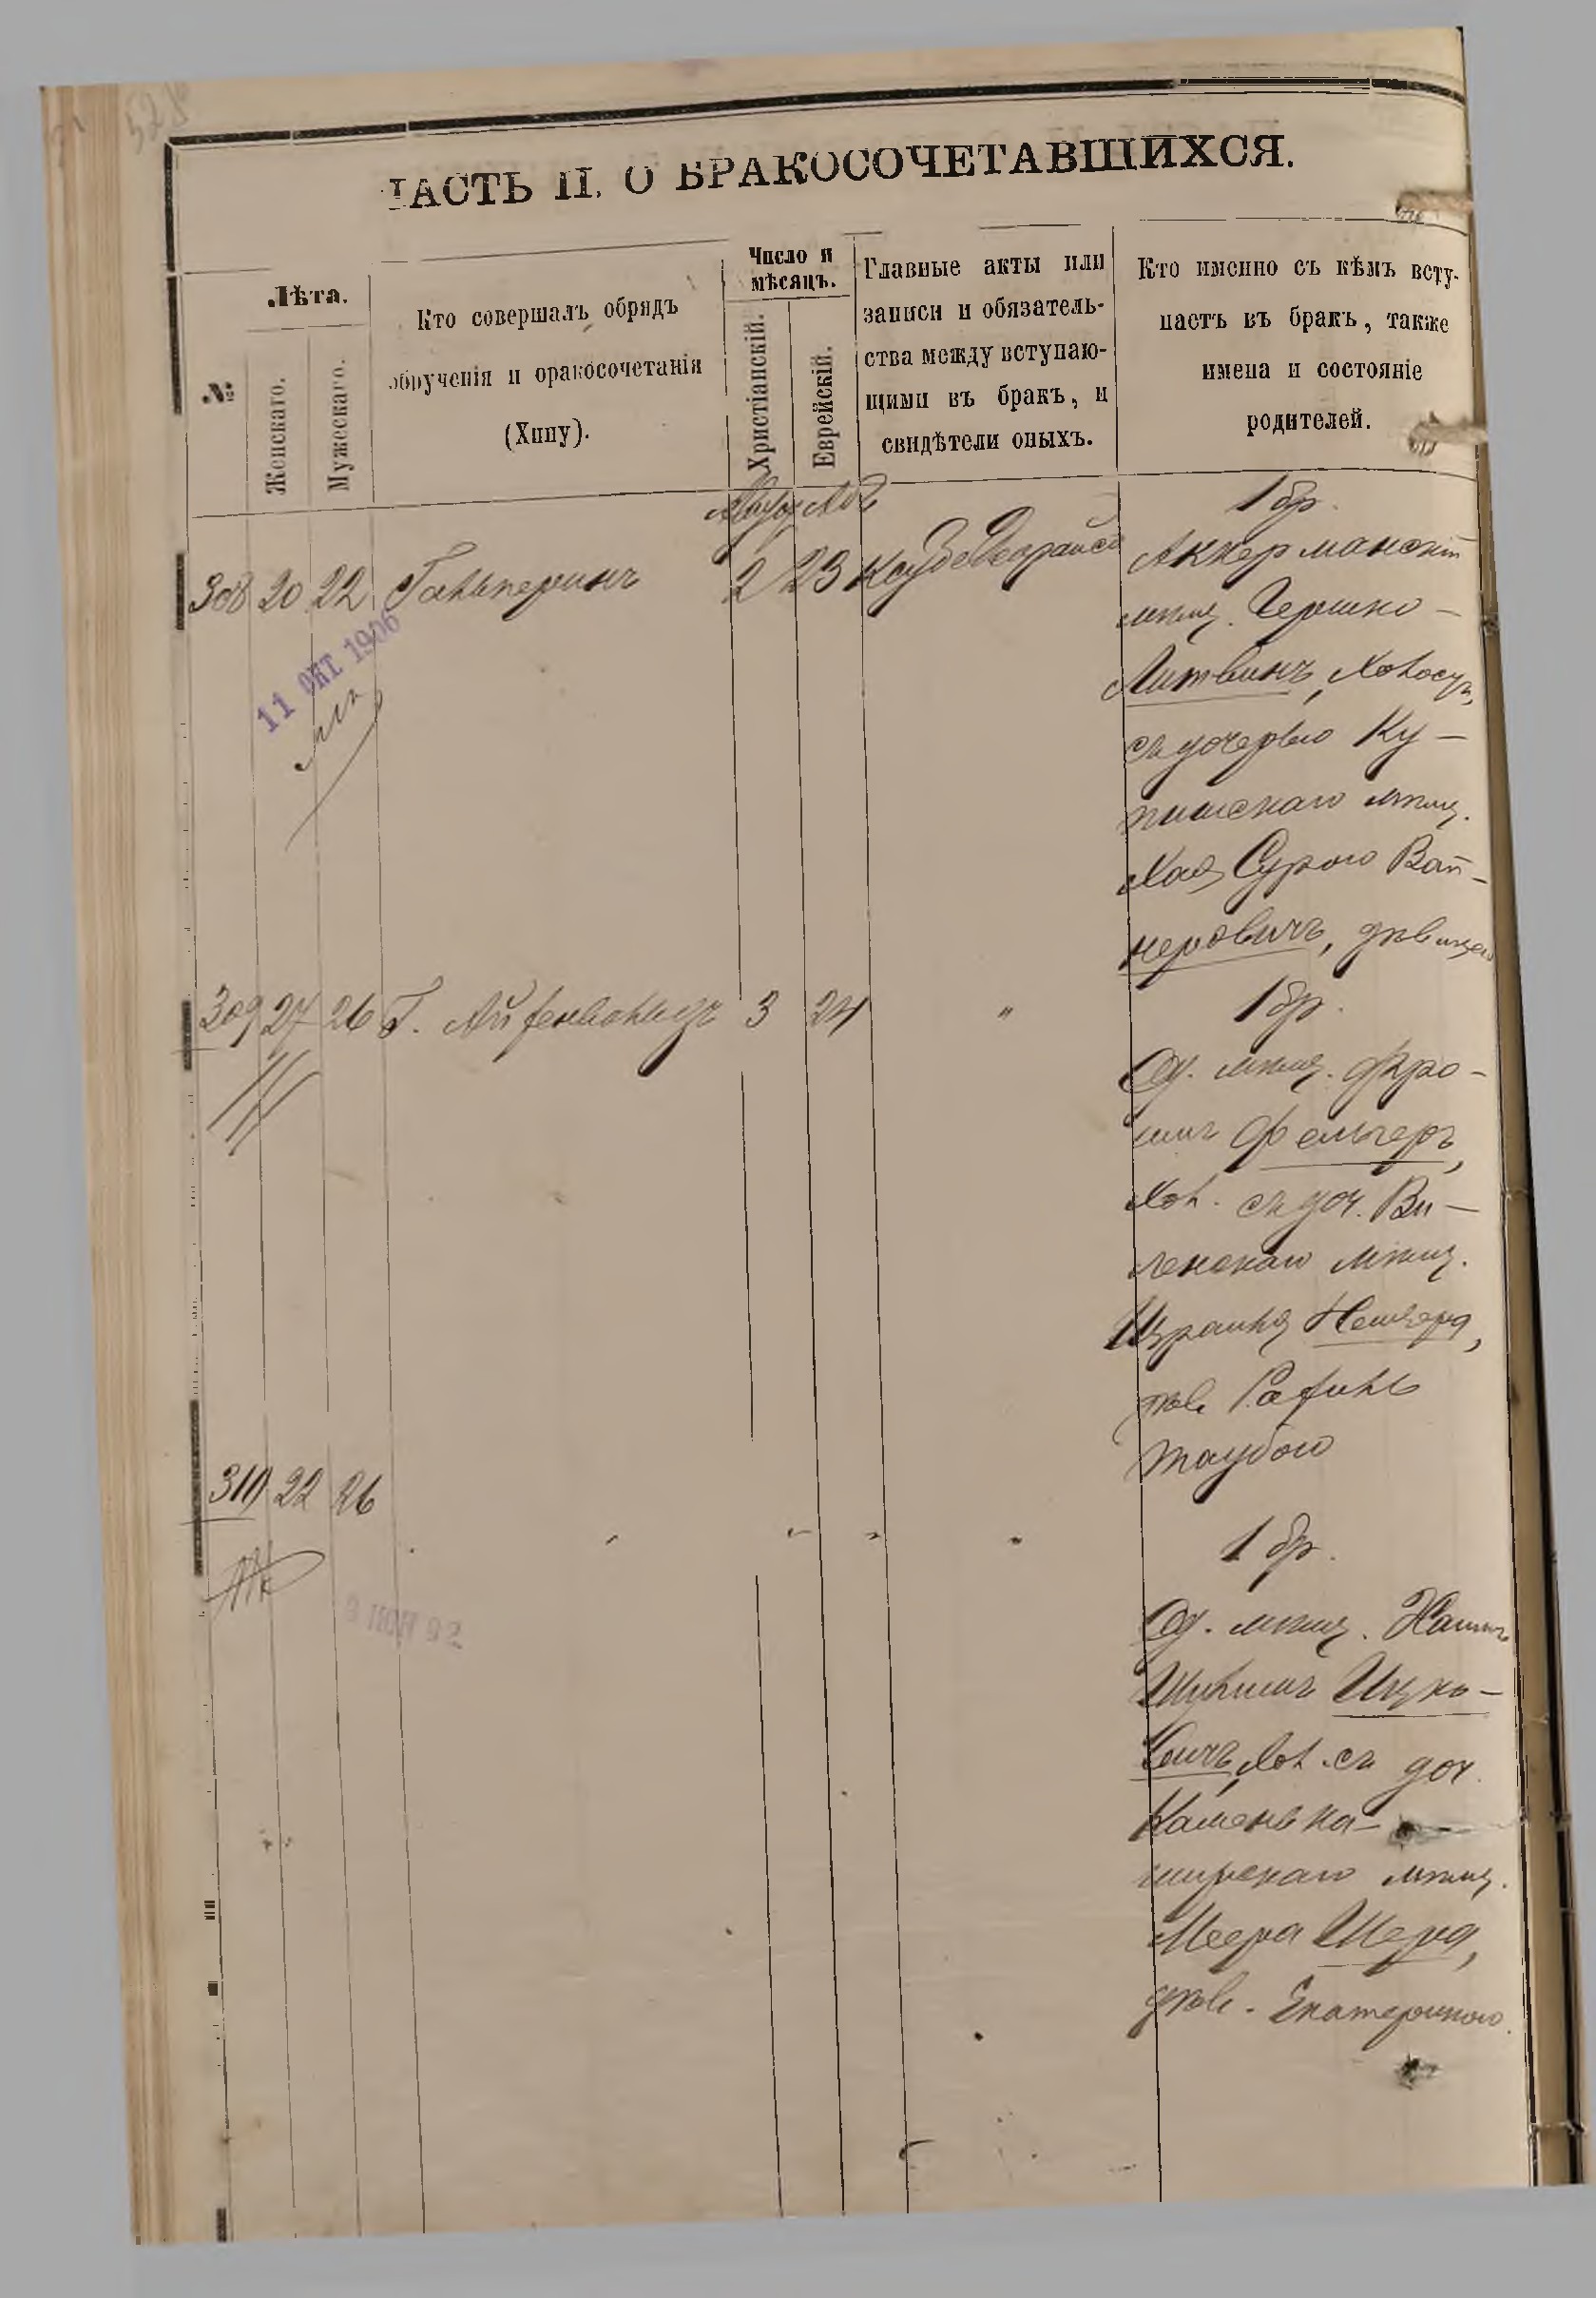 ЧАСТЬ II. О БРАКОСОЧЕТАВШИХСЯ.
№
Лѣта.
Женскаго.
Мужескаго.
Кто совершалъ обрядъ
обрученія и бракосочетанія
(Хипу).
Число и
мѣсяцъ.
Христіанскій.
Еврейскій.
Главные акты или
записи и обязатель-
ства между вступаю-
щими въ бракъ, и
свидѣтели оныхъ.
Кто именно съ кѣмъ всту-
паетъ въ бракъ, также
имена и состояніе
родителей.
308 20 22 Гальперинъ 2 23
1 бр.
Аккерманскій
мѣщ. Гершко -
Литвинъ, холост,
съ дочерью Ку-
тишскаго мѣщ.
Хая Сурою Вай-
неровичъ, дѣвицею
11 ОКТ. 1906
309 27 26 Г. Айзенвальдъ 3 24 "
1 бр.
Од. мѣщ. Фро-
имъ Фельчеръ,
хол. съ доч. Ви-
ленскаго мѣщ.
Израиля
дѣв. Рахиль
Таубою
310 22 26 " " " "
1 бр.
Од. мѣщ. Хаимъ
Шулимъ Ицко-
вичъ, хол. съ доч.
Каменька-
ширскаго мѣщ.
Меера Шера,
дѣв. Екатериною.